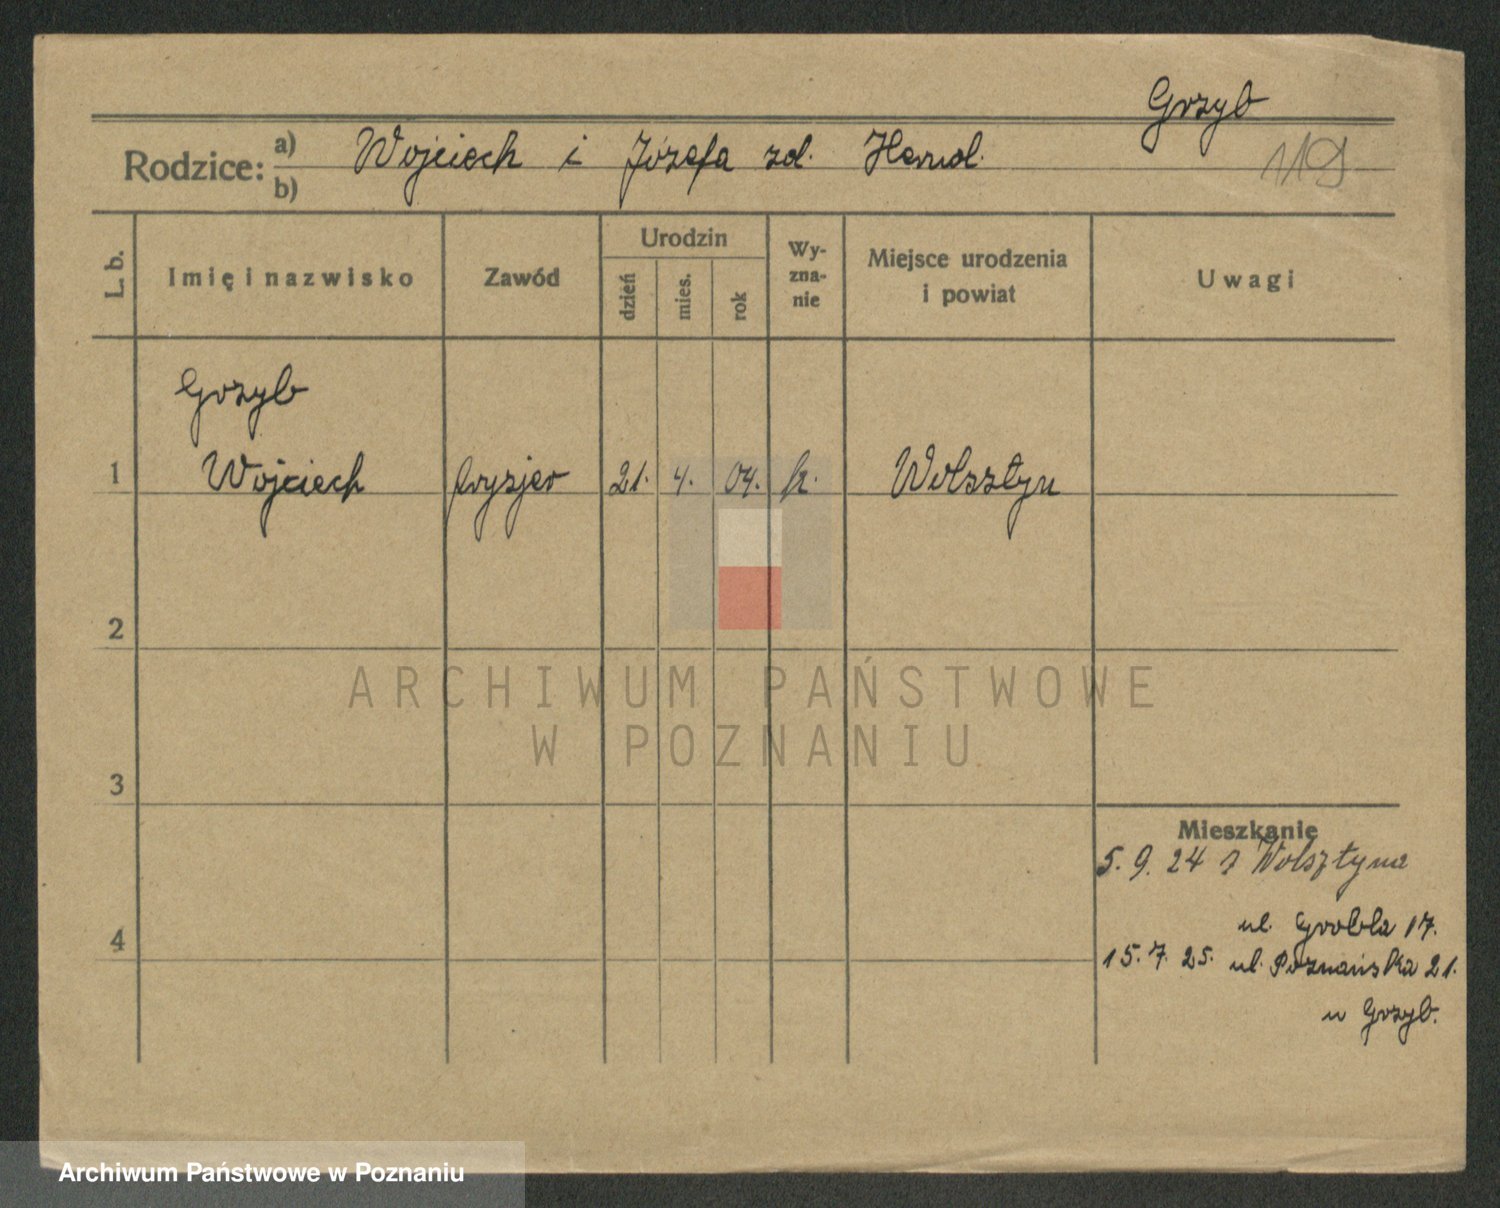 Grzyb
119
Rodzice: a) Wojciech i Józefa zd.
b)
L. b.
Imię i nazwisko
Zawód
Urodzin
dzień
mies.
rok
Wy-
zna-
nie
Miejsce urodzenia
i powiat
Uwagi
Grzyb
1 Wojciech fryzjer 21. 4. 04. k. Wolsztyn
2
3
4
Mieszkanie
5. 9. 24 z Wolsztyna
ul. Grobla 17.
15. 7. 25. ul. Poznańska 21.
u Grzyb.
ARCHIWUM PAŃSTWOWE
W POZNANIU
Archiwum Państwowe w Poznaniu